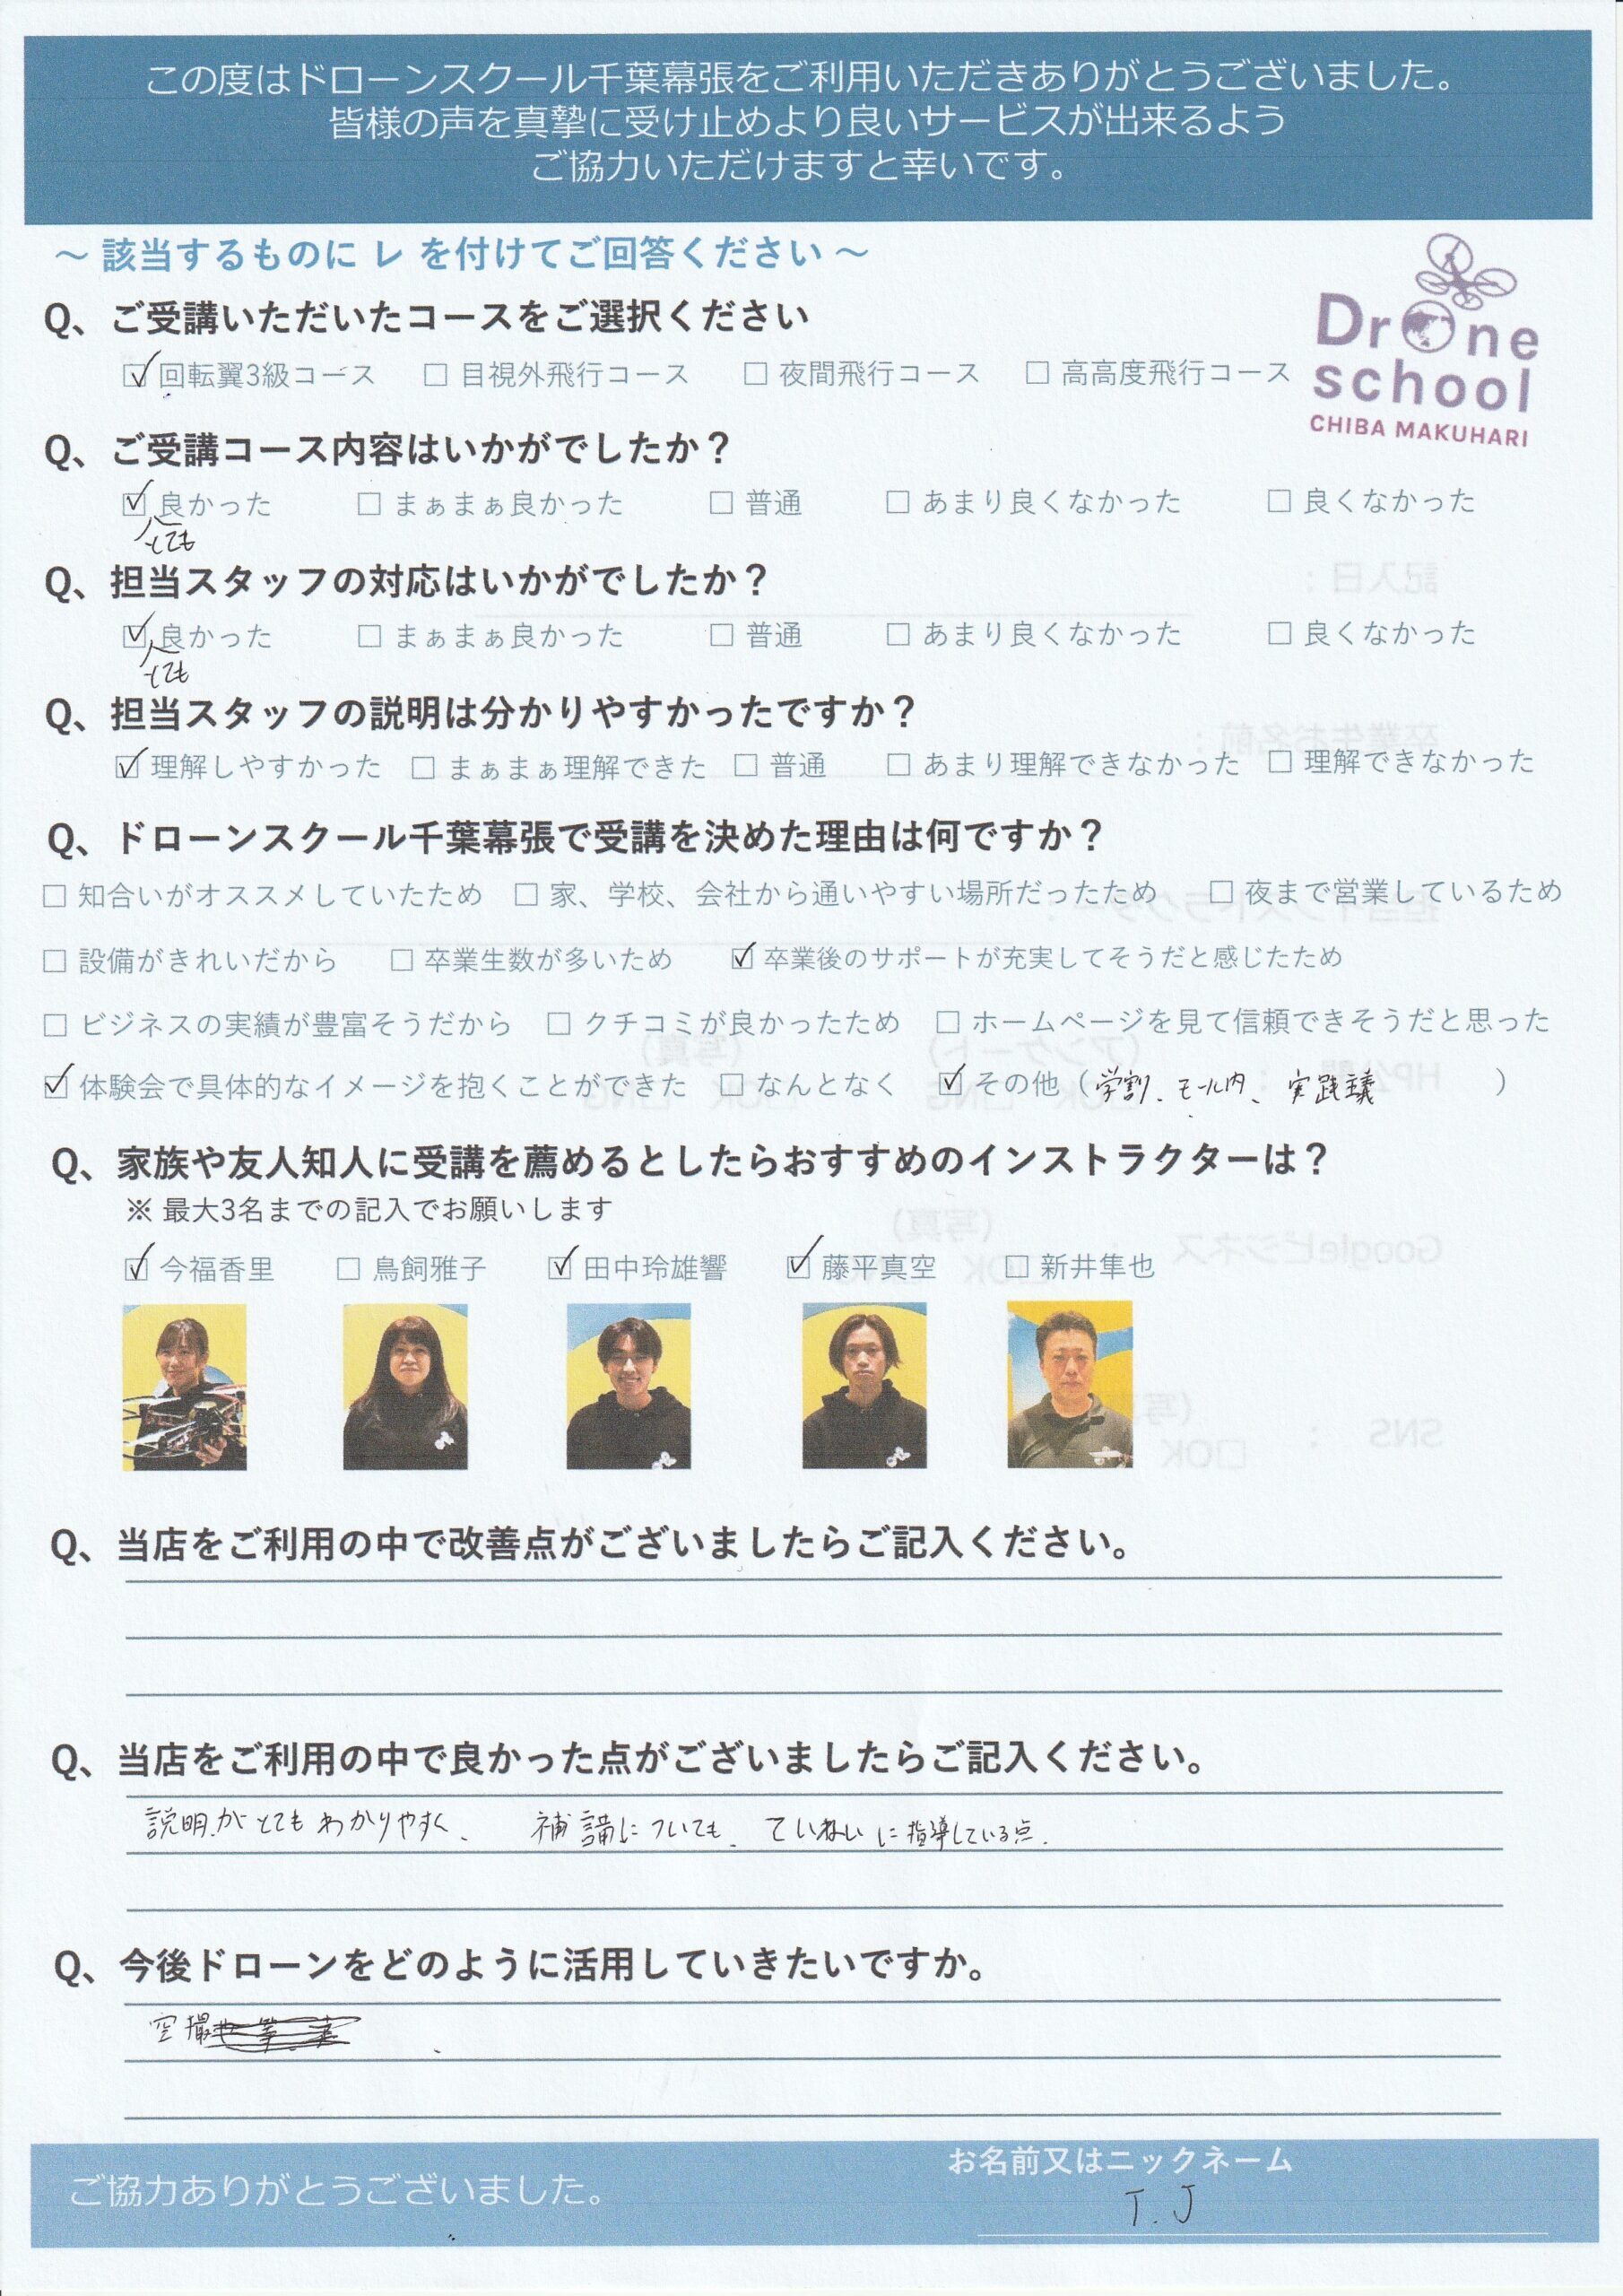 この度はドローンスクール千葉幕張をご利用いただきありがとうございました。
皆様の声を真摯に受け止めより良いサービスが出来るよう
ご協力いただけますと幸いです。
～ 該当するものに レ を付けてご回答ください ～
Drone
school
CHIBA MAKUHARI
Q、ご受講いただいたコースをご選択ください
☑ 回転翼3級コース □ 目視外飛行コース □ 夜間飛行コース □ 高高度飛行コース
Q、ご受講コース内容はいかがでしたか？
☑ 良かった □ まぁまぁ良かった □ 普通 □ あまり良くなかった □ 良くなかった
とても
Q、担当スタッフの対応はいかがでしたか？
☑ 良かった □ まぁまぁ良かった □ 普通 □ あまり良くなかった □ 良くなかった
とても
Q、担当スタッフの説明は分かりやすかったですか？
☑ 理解しやすかった □ まぁまぁ理解できた □ 普通 □ あまり理解できなかった □ 理解できなかった
Q、ドローンスクール千葉幕張で受講を決めた理由は何ですか？
□ 知合いがオススメしていたため □ 家、学校、会社から通いやすい場所だったため □ 夜まで営業しているため
□ 設備がきれいだから □ 卒業生数が多いため ☑ 卒業後のサポートが充実してそうだと感じたため
□ ビジネスの実績が豊富そうだから □ クチコミが良かったため □ ホームページを見て信頼できそうだと思った
☑ 体験会で具体的なイメージを抱くことができた □ なんとなく ☑ その他（学割、モール内、実践 ）
Q、家族や友人知人に受講を薦めるとしたらおすすめのインストラクターは？
※ 最大3名までの記入でお願いします
☑ 今福香里 □ 鳥飼雅子 ☑ 田中玲雄響 ☑ 藤平真空 □ 新井隼也
Q、当店をご利用の中で改善点がございましたらご記入ください。
Q、当店をご利用の中で良かった点がございましたらご記入ください。
説明がとてもわかりやすく、 補講についても、ていねいに指導している点.
Q、今後ドローンをどのように活用していきたいですか。
空撮
ご協力ありがとうございました。
お名前又はニックネーム
T.J